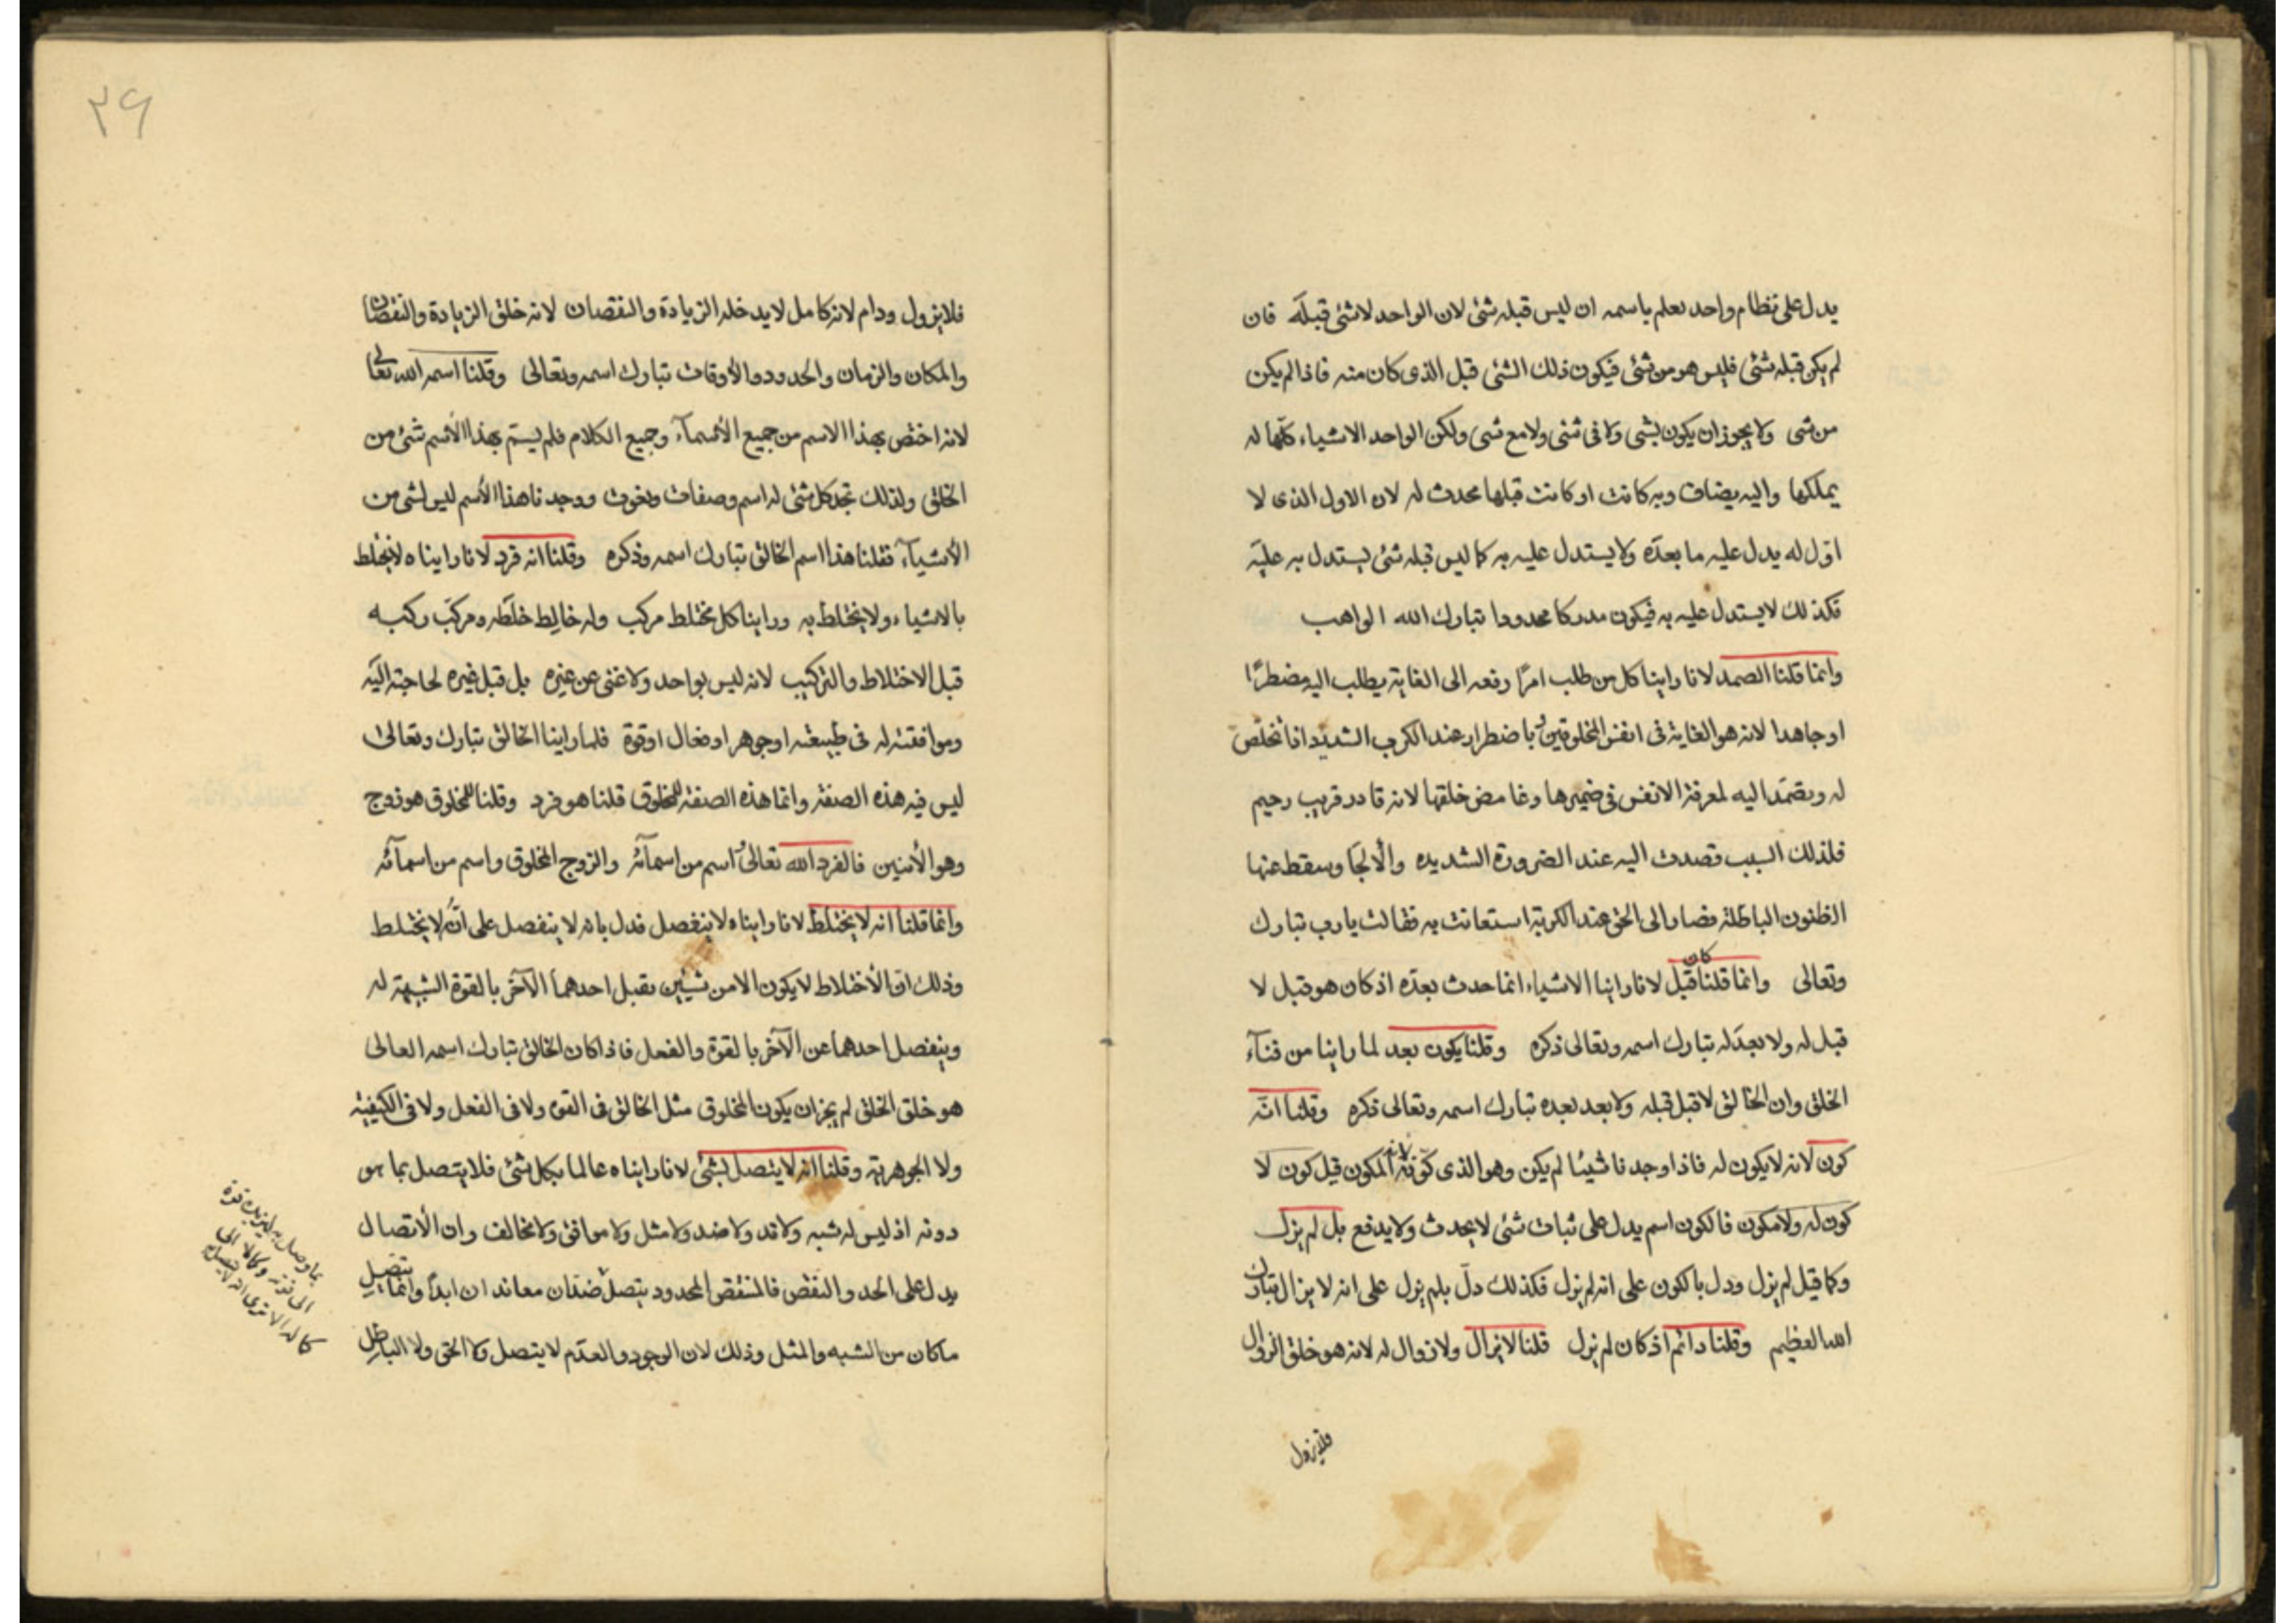 يدل على نظام واحد يعلم باسمه ان ليس قبله شئ لان الواحد لا شئ قبله فان
لم يكن قبله شئ فليس هو من شئ فيكون ذلك الشئ قبل الذى كان منه فاذا لم يكن
من شى ولا يجوز ان يكون بشى ولا فى شئى ولا مع شى ولكن الواحد الاشياء كلّها له
يملكها واليه يضاف وبه كانت او كانت قبلها محدث له لان الاول الذى لا
اوّل له يدل عليه ما بعدَه ولا يستدل عليه به كما ليس قبله شئ يستدل به عليَه
فكذلك لا يستدل عليه به فيكون مدركا محدودا تبارك الله الواهب
وانما قلنا الصمد لانا راينا كل من طلب امرًا رفعه الى الغاية يطلب اليه مضطرًا
او جاهدا لانه هو الغاية فى انفس المخلوقين باضطرار عند الكرب الشديد اذا تخلّص
له وبصمد اليه لمعرفة الانفس فى ضميرها وغامض خلقها لانه قادر قريب رحيم
فلذلك السبب قصدت اليه عند الضرورة الشديده والألجا وسقط عنها
الظنون الباطلة فصار الى الحق عند الكربة استعانت به فقالت يا رب تبارك
وتعالى وانما قلنا كان قبل لانا راينا الاشياء انما حدث بعدَه اذ كان هو قبل لا
قبل له ولا بعدَ له تبارك اسمه وتعالى ذكره وقلنا يكون بعد لما راينا من فنآء
الخلق وان الخالق لا قبل قبله ولا بعد بعده تبارك اسمه وتعالى ذكره وقلنا انّه
كون لانه لا يكون له فاذا وجدنا شيئا لم يكن وهو الذى كوّنه لانه المكون قبل كون لا
كون له ولا مكون فالكون اسم يدل على ثبات شئ لا يحدث ولا يدفع بل لم يزل
وكما قيل لم يزل ودل بالكون على انه لم يزل فكذلك دلّ بلم يزل على انه لا يزال تبارك
الله العظيم وقلنا دائم اذ كان لم يزل قلنا لا يزال ولا زوال له لانه هو خلق الزوال
فلايزول
٢٦
فلايزول ودام لانه كامل لا يدخله الزيادة والنقصان لانه خلق الزيادة والنقصان
والمكان والزمان والحدود والأوقات تبارك اسمه وتعالى وقلنا اسمه الله تعالى
لانه اختص بهذا الاسم من جميع الأسمآء وجميع الكلام فلم يسمّ بهذا الأسم شئ من
الخلق ولذلك تجد كل شئ له اسم وصفات ونعوت ووجدنا هذا الأسم ليس لشى من
الأشيآء فقلنا هذا اسم الخالق تبارك اسمه وذكره وقلنا انه فرد لانا رايناه لا يختلط
بالاشياء ولا يختلط به وراينا كل مختلط مركب وله خالط خلطَه ومركّب ركبه
قبل الاختلاط والتركيب لانه ليس بواحد ولا غنى عن غيره بل قبل غيره لحاجته اليَه
وموافقته له فى طبيعته او جوهر او فعال او قوة فلما راينا الخالق تبارك وتعالى
ليس فيه هذه الصفة وانما هذه الصفة للمخلوق قلنا هو فرد وقلنا للمخلوق هو زوج
وهو الأثنين فالفرد الله تعالى اسم من اسمآئه والزوج المخلوق واسم من اسمآئه
وانما قلنا انه لا يختلط لانا رايناه لا ينفصل فدل بانه لا ينفصل على انّه لا يختلط
وذلك انّ الأختلاط لا يكون الا من شيئين يقبل احدهما الآخر بالقوة الشبيهة له
وينفصل احدهما عن الآخر بالقوة والفعل فاذا كان الخالق تبارك اسمه العالى
هو خلق الخلق لم يجز ان يكون المخلوق مثل الخالق فى القوى ولا فى الفعل ولا فى الكيفية
ولا الجوهرية وقلنا انه لا يتصل بشئ لانا رايناه عالما بكل شئ فلا يتصل بما هو
دونه اذ ليس له شبه ولا ند ولا ضد ولا مثل ولا موافق ولا مخالف وان الأتصال
يدل على الحد والنقص فالمنتقص المحدود يتصل ضدان معاندان ابدًا وانما يتصل
ما كان من الشبه والمثل وذلك لان الوجود والعدَم لا يتصل ولا الحق ولا الباطل
بما وصل به ليزيده قوة
الى قوته وكمالا الى
كماله الا ترى انه لا يتصل